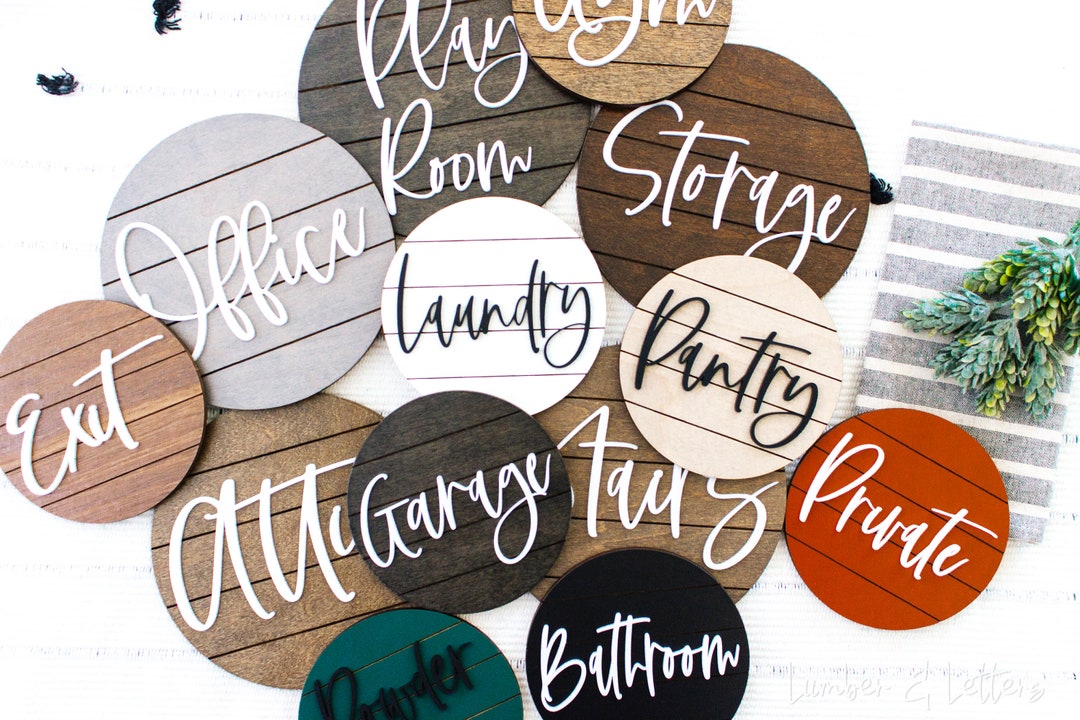 Play
Room
Gym
Storage
Office
Laundry
Pantry
Exit
Attic
Garage
Stairs
Private
Bathroom
Powder
Lumber & Letters